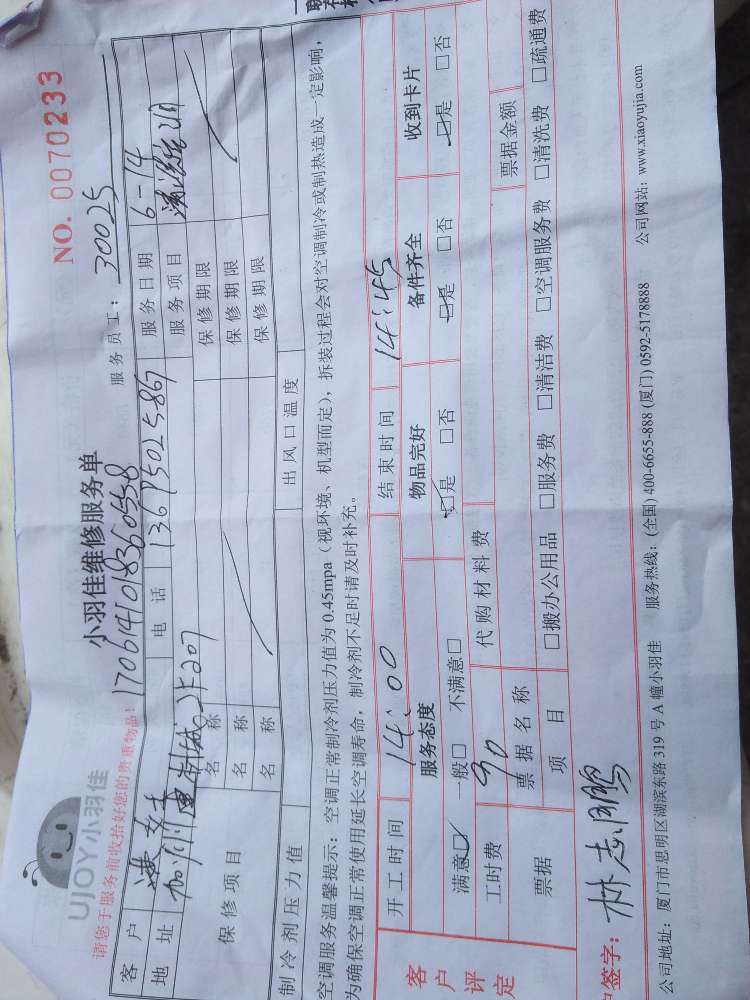 UJOY小羽佳
小羽佳维修服务单
NO. 0070233
请您于服务前收拾好您的贵重物品!
1706141018360558
服务员工: 30025
客户 女士 电话 1369502586 服务日期 6-14
地址 2F207 服务项目
保修项目 名称 保修期限
名称 保修期限
名称 保修期限
制冷剂压力值 出风口温度
空调服务温馨提示:空调正常制冷剂压力值为0.45mpa(视环境、机型而定),拆装过程会对空调制冷或制热造成一定影响,
为确保空调正常使用延长空调寿命,制冷剂不足时请及时补充。
客户评定
开工时间 14:00 结束时间 14:45
服务态度 物品完好 备件齐全 收到卡片
满意☑ 一般□ 不满意□ ☑是 □否 ☑是 □否 ☑是 □否
工时费 90 代购材料费
票据 票据名称 票据金额
项目 □搬办公用品 □服务费 □清洁费 □空调服务费 □清洗费 □疏通费
户签字: 林志鹏
公司地址:厦门市思明区湖滨东路319号A幢小羽佳 服务热线:(全国)400-6655-888(厦门)0592-5178888 公司网站:www.xiaoyujia.com